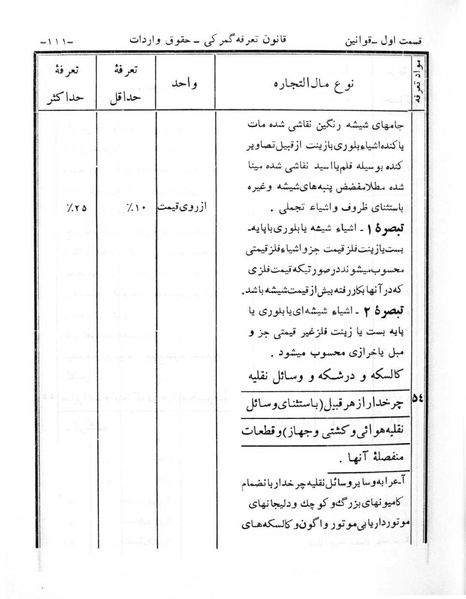 قسمت اول ـ قوانین
قانون تعرفه گمرکی ـ حقوق واردات
ـ ۱۱۱ ـ
مواد تعرفه
نوع مال‌التجاره
واحد
تعرفهٔ حداقل
تعرفهٔ حداکثر
جامهای شیشه رنگین نقاشی شده مات
یا کنده اشیاء بلوری با زینت از قبیل تصاویر
کنده بوسیله قلم یا اسید نقاشی شده مینا
شده مطلا مفضض پنبه‌های شیشه و غیره
باستثنای ظروف و اشیاء تجملی .
از روی قیمت
۱۰٪
۲۵٪
تبصرهٔ ۱ ـ اشیاء شیشه یا بلوری با پایه ـ
بست یا زینت فلز قیمتی جز و اشیاء فلز قیمتی
محسوب میشوند در صورتیکه قیمت فلزی
که در آنها بکار رفته بیش از قیمت شیشه باشد.
تبصرهٔ ۲ ـ اشیاء شیشه‌ای یا بلوری یا
پایه بست یا زینت فلز غیر قیمتی جز و
مبل یا خرازی محسوب میشود .
کالسکه و درشکه و وسائل نقلیه
۵۴
چرخدار از هر قبیل (باستثنای وسائل
نقلیه هوائی و کشتی و جهاز) و قطعات
منفصلهٔ آنها .
آ ـ عرابه و سایر وسائل نقلیه چرخدار بانضمام
کامیونهای بزرگ و کوچک و دلیجانهای
موتوردار یا بی موتور واگون و کالسکه‌های